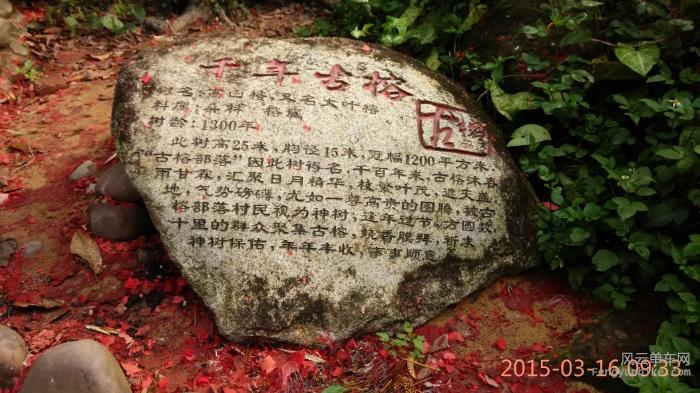 千年古榕
古榕
树名:高山榕,又名大叶榕
科属:桑科 榕属
树龄:1300年
此树高25米,胸径15米,冠幅1200平方米,
"古榕部落"因此树得名,千百年来,古榕沐春
雨甘霖,汇聚日月精华,枝繁叶茂,遮天盖
地,气势磅礴,尤如一尊高贵的图腾,被古
榕部落村民视为神树,逢年过节,方圆数
十里的群众聚集古榕,
神树保佑,年年丰收,事事顺意。
2015-03-16 09:33
风云单车网